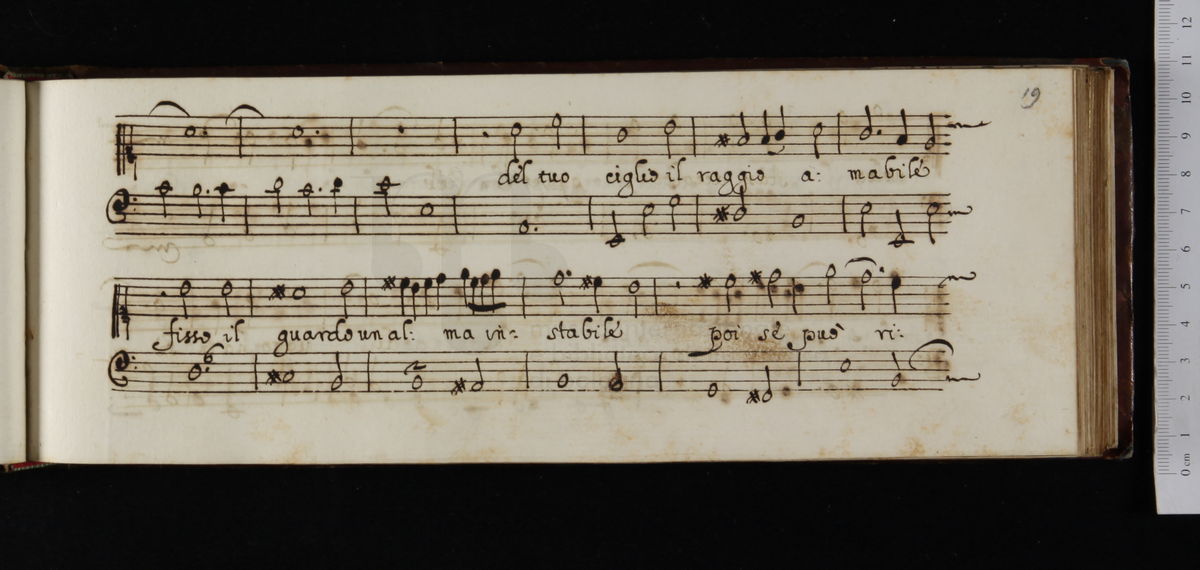 19
del tuo ciglio il raggio a: mabile
fisso il guardo un al: ma in: stabile poi se può ri:
6
2
12
11
10
9
8
7
6
5
4
3
2
1
0 cm